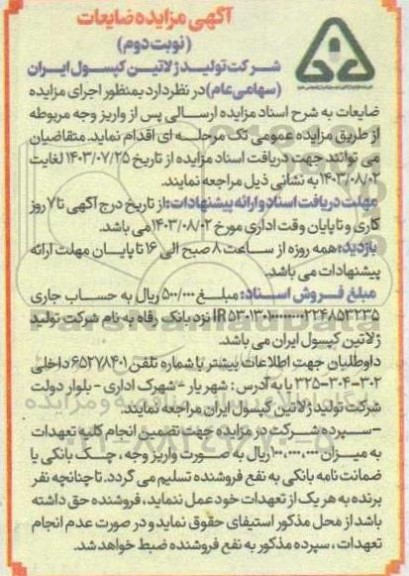 آگهی مزایده ضایعات
(نوبت دوم)
شرکت تولید ژلاتین کپسول ایران
(سهامی عام) در نظر دارد بمنظور اجرای مزایده
ضایعات به شرح اسناد مزایده ارسالی پس از واریز وجه مربوطه
از طریق مزایده عمومی تک مرحله ای اقدام نماید. متقاضیان
می توانند جهت دریافت اسناد مزایده از تاریخ ۱۴۰۳/۰۷/۲۵ لغایت
۱۴۰۳/۰۸/۰۲ به نشانی ذیل مراجعه نمایند.
مهلت دریافت اسناد و ارائه پیشنهادات: از تاریخ درج آگهی تا ۷ روز
کاری و تا پایان وقت اداری مورخ ۱۴۰۳/۰۸/۰۲ می باشد.
بازدید: همه روزه از ساعت ۸ صبح الی ۱۶ تا پایان مهلت ارائه
پیشنهادات می باشد.
مبلغ فروش اسناد: مبلغ ۵۰۰/۰۰۰ ریال به حساب جاری
نزد بانک رفاه به نام شرکت تولید
ژلاتین کپسول ایران می باشد.
داوطلبان جهت اطلاعات بیشتر با شماره تلفن ۶۵۲۷۸۴۰۱ داخلی
۳۰۲-۳۰۴-۳۲۵ یا به آدرس : شهریار - شهرک اداری - بلوار دولت
شرکت تولید ژلاتین کپسول ایران مراجعه نمایند.
-سپرده شرکت در مزایده جهت تضمین انجام کلیه تعهدات
به میزان ۱۰۰,۰۰۰,۰۰۰ ریال به صورت واریز وجه ، چک بانکی یا
ضمانت نامه بانکی به نفع فروشنده تسلیم می گردد. تا چنانچه نفر
برنده به هر یک از تعهدات خود عمل ننماید، فروشنده حق داشته
باشد از محل مذکور استیفای حقوق نماید و در صورت عدم انجام
تعهدات ، سپرده مذکور به نفع فروشنده ضبط خواهد شد.